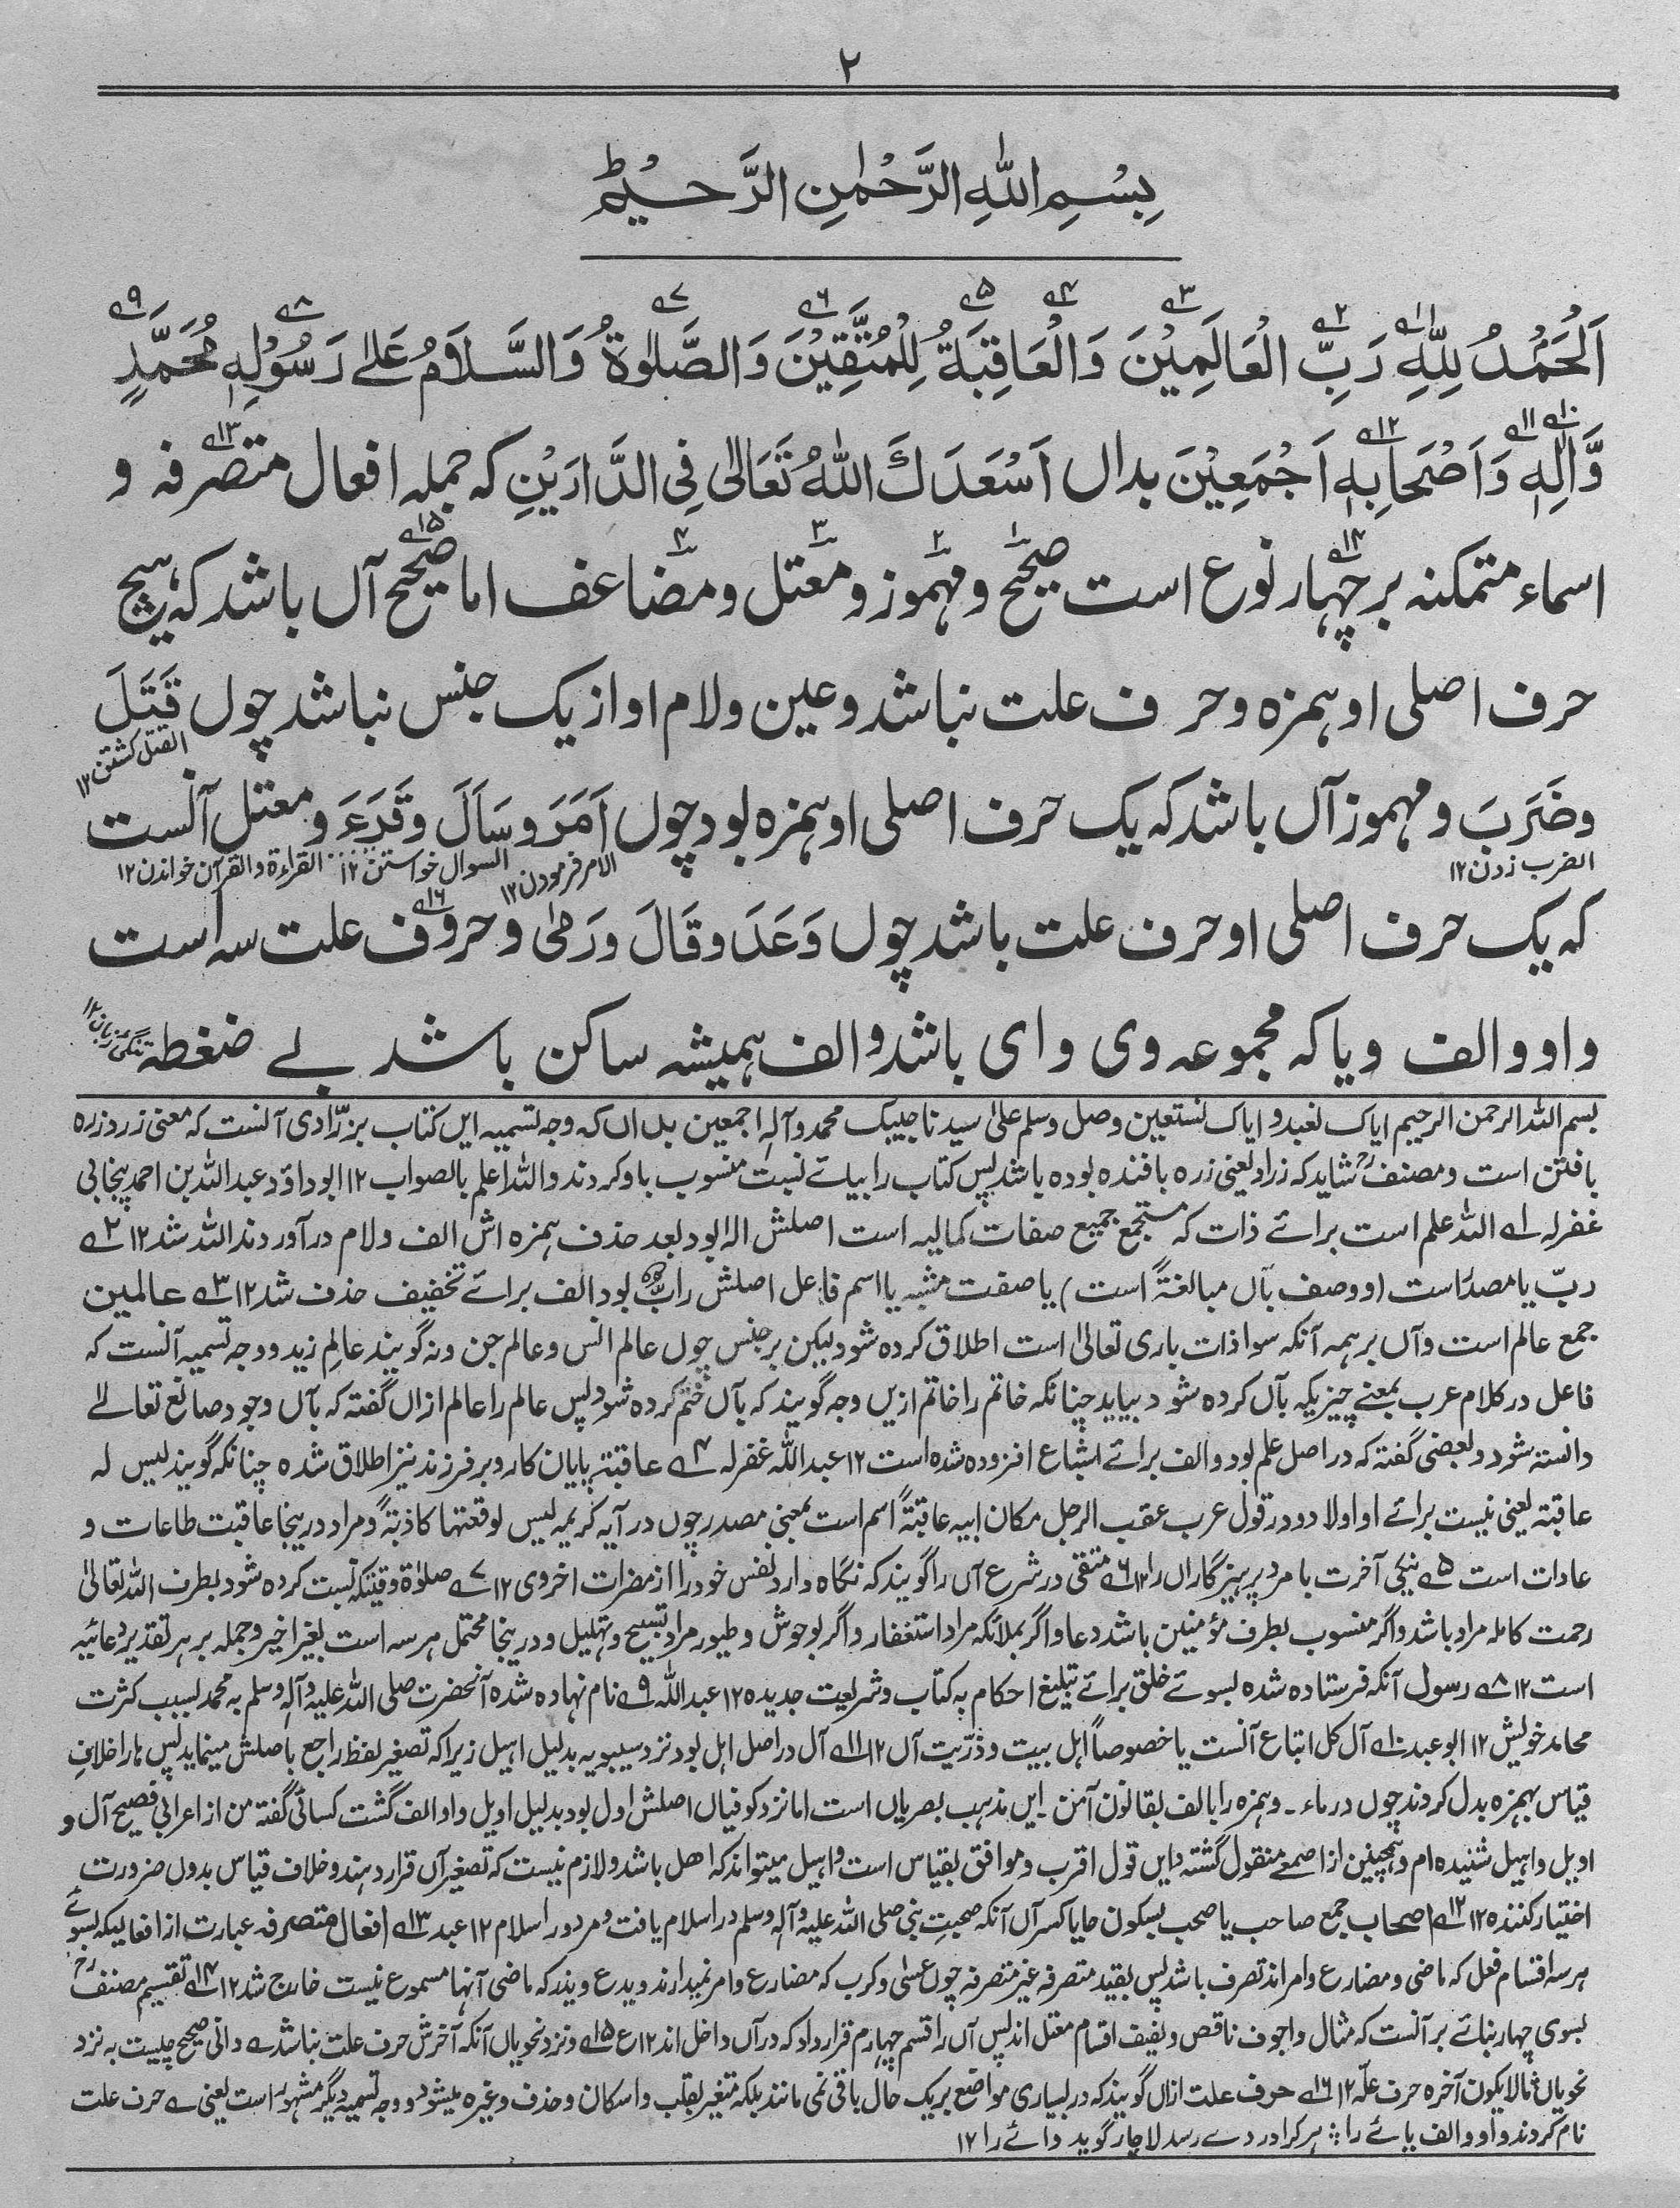 ۲
بِسْمِ اللهِ الرَّحْمٰنِ الرَّحِیْمِ
اَلْحَمْدُ لِلّٰهِ رَبِّ الْعَالَمِیْنَ وَالْعَاقِبَةُ لِلْمُتَّقِیْنَ وَالصَّلٰوةُ وَالسَّلَامُ عَلٰى رَسُوْلِهٖ مُحَمَّدٍ
وَّاٰلِهٖ وَاَصْحَابِهٖ اَجْمَعِیْنَ بداں اَسْعَدَكَ اللهُ تَعَالٰی فِی الدَّارَیْنِ که جمله افعال متصرفه و
اسماء متمکنه بر چہار نوع است صحیح و مہموز و معتل و مضاعف اما صحیح آں باشد که ہیچ
حرف اصلی او ہمزه و حرف علت نباشد و عین و لام او از یک جنس نباشد چوں قَتَلَ
القتل کشتن ۱۲
وضَرَبَ و مہموز آں باشد که یک حرف اصلی او ہمزه بود چوں اَمَرَ و سَاَلَ و قَرَءَ و معتل آنست
الضرب زدن ۱۲ الامر فرمودن ۱۲ السوال خواستن ۱۲ القراءة والقرآن خواندن ۱۲
که یک حرف اصلی او حرف علت باشد چوں وَعَدَ و قَالَ و رَمٰی و حروف علت سه است
واو و الف و یا که مجموعه وی وای باشد و الف ہمیشه ساکن باشد بے ضغطه
تنگی زبان ۱۲
بسم الله الرحمن الرحیم ایاک نعبد و ایاک نستعین وصل وسلم علیٰ سیدنا حبیبک محمد وآلہٖ اجمعین بداں که وجه تسمیه ایں کتاب بزرّادی آنست که معنی زرد زره
بافتن است و مصنفؒ شاید که زراد یعنی زره بافنده بوده باشد پس کتاب را بیائے نسبت منسوب باو کردند والله اعلم بالصواب ۱۲ ابوداؤد عبدالله بن احمد پنجابی
غفرله ۱ے الله علم است برائے ذات که مستجمع جمیع صفات کمالیه است اصلش اله بود بعد حذف ہمزه اش الف و لام در آوردند الله شد ۱۲ ۲ے
ربّ یا مصدر است (و وصف بآں مبالغةً است) یا صفت مشبه یا اسم فاعل اصلش رابّ بود الف برائے تخفیف حذف شد ۱۲ ۳ے عالمین
جمع عالم است و آں بر ہمه آنکه سوا ذات باری تعالیٰ است اطلاق کرده شود لیکن بر جنس چوں عالم انس و عالم جن و نه گویند عالمِ زید و وجه تسمیه آنست که
فاعل در کلام عرب بمعنے چیزیکه بآں کرده شود بیاید چنانکه خاتم را خاتم ازیں وجه گویند که بآں ختم کرده شود پس عالم را عالم ازاں گفته که بآں وجود صانع تعالے
دانسته شود و بعضی گفته که در اصل علم بود و الف برائے اشباع افزوده شده است ۱۲ عبدالله غفرله ۴ے عاقبة پایان کار و بر فرزند نیز اطلاق شده چنانکه گویند لیس له
عاقبة یعنی نیست برائے او اولاد و در قول عرب عقب الرجل مکان ابیه عاقبةً اسم است بمعنی مصدر چوں در آیه کریمه لیس لوقعتها کاذبةٌ و مراد درینجا عاقبت طاعات و
عادات است ۵ے نیکی آخرت یا مرد پرہیزگاراں را ۱۲ ۶ے متقی در شرع آں را گویند که نگاه دارد نفس خود را از مضرات اخروی ۱۲ ۷ے صلوٰة وقتیکه نسبت کرده شود بطرف الله تعالیٰ
رحمت کامله مراد باشد و اگر منسوب بطرف مؤمنین باشد دعا و اگر بملائکه مراد استغفار و اگر بوحوش و طیور مراد تسبیح و تہلیل و درینجا محتمل ہر سه است بغیر اخیر و جمله بر ہر تقدیر دعائیه
است ۱۲ ۸ے رسول آنکه فرستاده شده بسوئے خلق برائے تبلیغ احکام به کتاب و شریعت جدیده ۱۲ عبدالله ۹ے نام نہاده شده آنحضرت صلی الله علیه وآلہٖ وسلم به محمد بسبب کثرت
محامد خویش ۱۲ ابو عبد ۱۰ے آل کل اتباع آنست یا خصوصاً اہل بیت و ذرّیت آں ۱۲ ۱۱ے آل در اصل اہل بود نزد سیبویه بدلیل اہیل زیراکه تصغیر لفظ راجع باصلش مینماید پس ہا را خلافِ
قیاس بہمزه بدل کردند چوں در ماء - و ہمزه را بالف بقانون آمن - ایں مذہب بصریاں است اما نزد کوفیاں اصلش اول بود بدلیل اویل واو الف گشت کسائی گفته من از اعرابی فصیح آل و
اویل و اہیل شنیده ام و ہمچنین از اصمعے منقول گشته و ایں قول اقرب و موافق بقیاس است و اہیل میتواند که اهل باشد و لازم نیست که تصغیر آل قرار دہند و خلاف قیاس بدوں ضرورت
اختیار کنند ۱۲ ۱۲ے اصحاب جمع صاحب یا صحب بسکون حا یا کسر آں آنکه صحبتِ نبی صلی الله علیه وآله وسلم در اسلام یافت و مرد در اسلام ۱۲ عبد ۱۳ے افعال متصرفه عبارت از افعالیکه بسوئے
ہر سه اقسام فعل که ماضی و مضارع و امر اند تصرف باشد پس بقید متصرفه غیر متصرفه چوں عسٰی و کرب که مضارع و امر نمیدارند و یدع و یذر که ماضی آنہا مسموع نیست خارج شد ۱۲ ۱۴ے تقسیم مصنفؒ
بسوی چہار بنائے بر آنست که مثال و اجوف ناقص و لفیف اقسام معتل اند پس آں را قسم چہارم قرار داد که در آں داخل اند ۱۲ ع ۱۵ے و نزد نحویاں آنکه آخرش حرف علت نباشد ے دانی صحیح چیست به نزد
نحویاں ؞ مالا یکون آخره حرف علّة ۱۲ ۱۶ے حرف علت ازاں گویند که در بسیاری مواضع بریک حال باقی نمی مانند بلکه متغیر بقلب و اسکان و حذف وغیره میشود و وجه تسمیه دیگر مشہور است یعنی ے حرف علت
نام کردند واو و الف یائے را ؞ ہر کرا دردے رسد لاچار گوید وائے را ۱۲